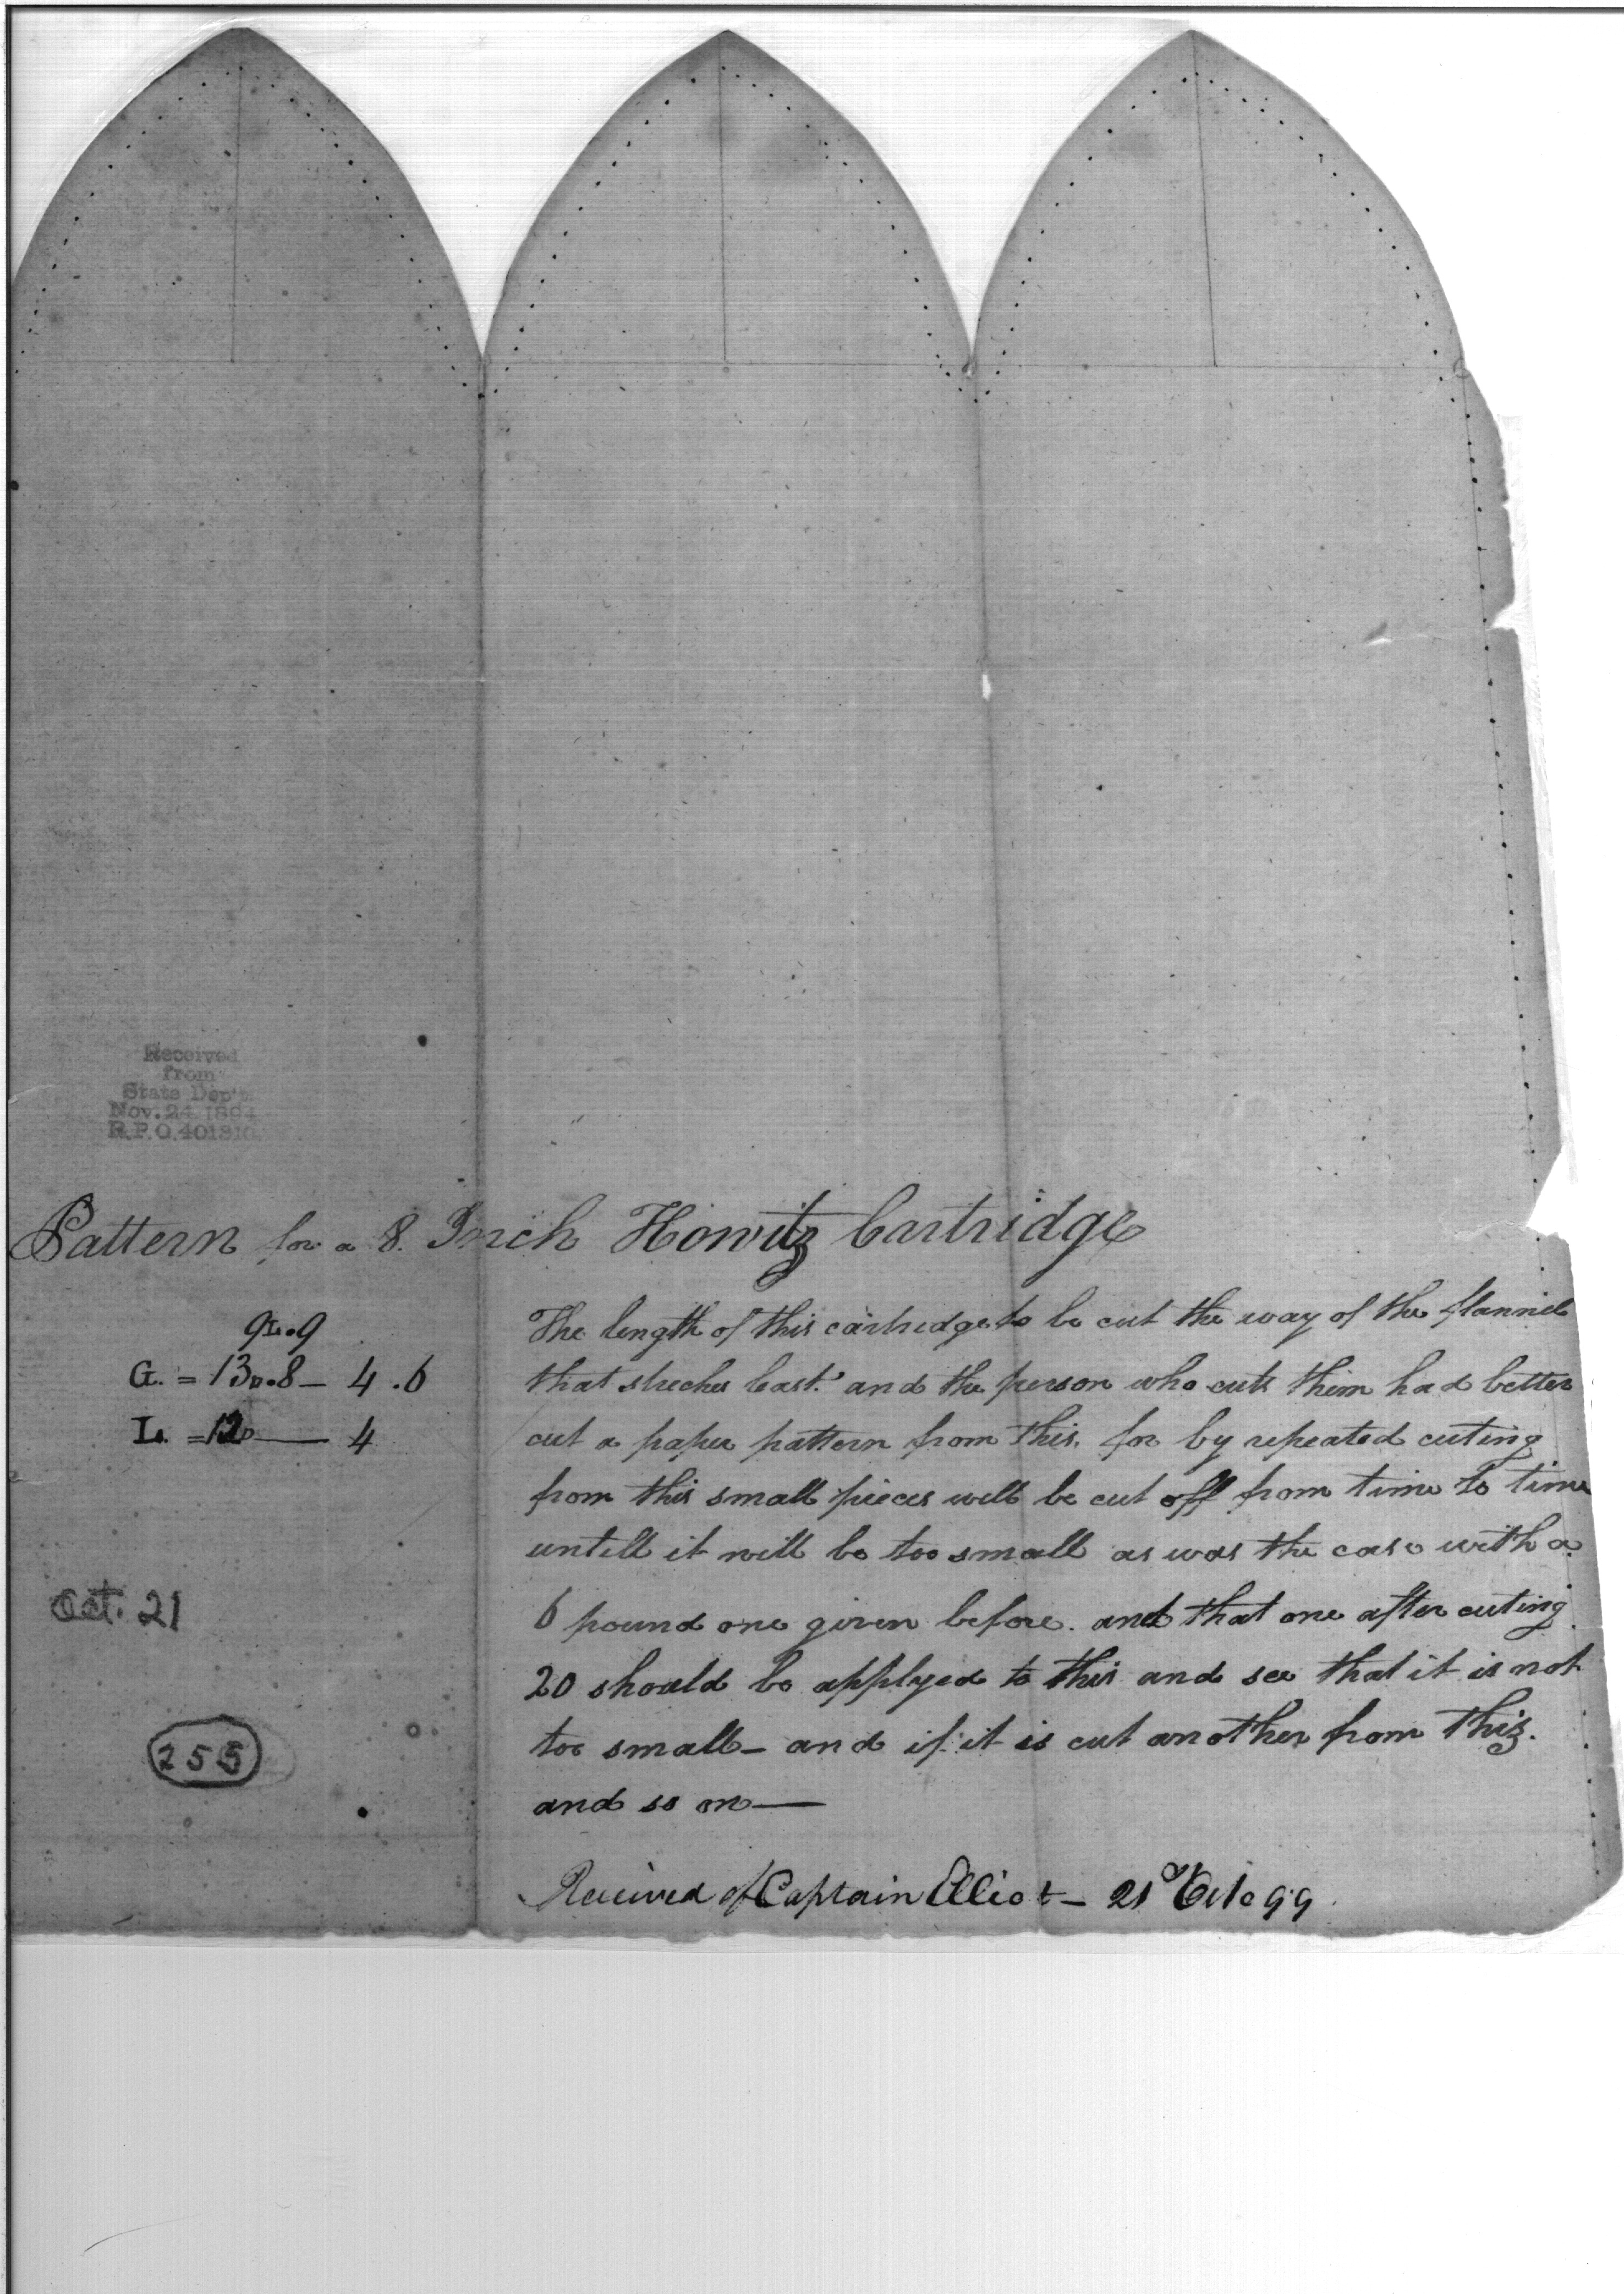 Received
from
State Dep't
Nov. 24 1894
R.P.O. 401310
Pattern for a 8. Inch Howitz Cartridge
9L.9
G. = 13 .8 — 4 .6
L. = 12 — 4
Oct. 21
255
The length of this cartridge to be cut the way of the flannel
that streches least. and the person who cuts them had better
cut a paper pattern from this. for by repeated cuting
from this small pieces will be cut off from time to time
untill it will be too small as was the case with a
6 pound one given before. and that one after cuting
20 should be applyed to this and see that it is not
too small — and if it is cut another from this.
and so on —
Received of Captain Elliot — 21 99